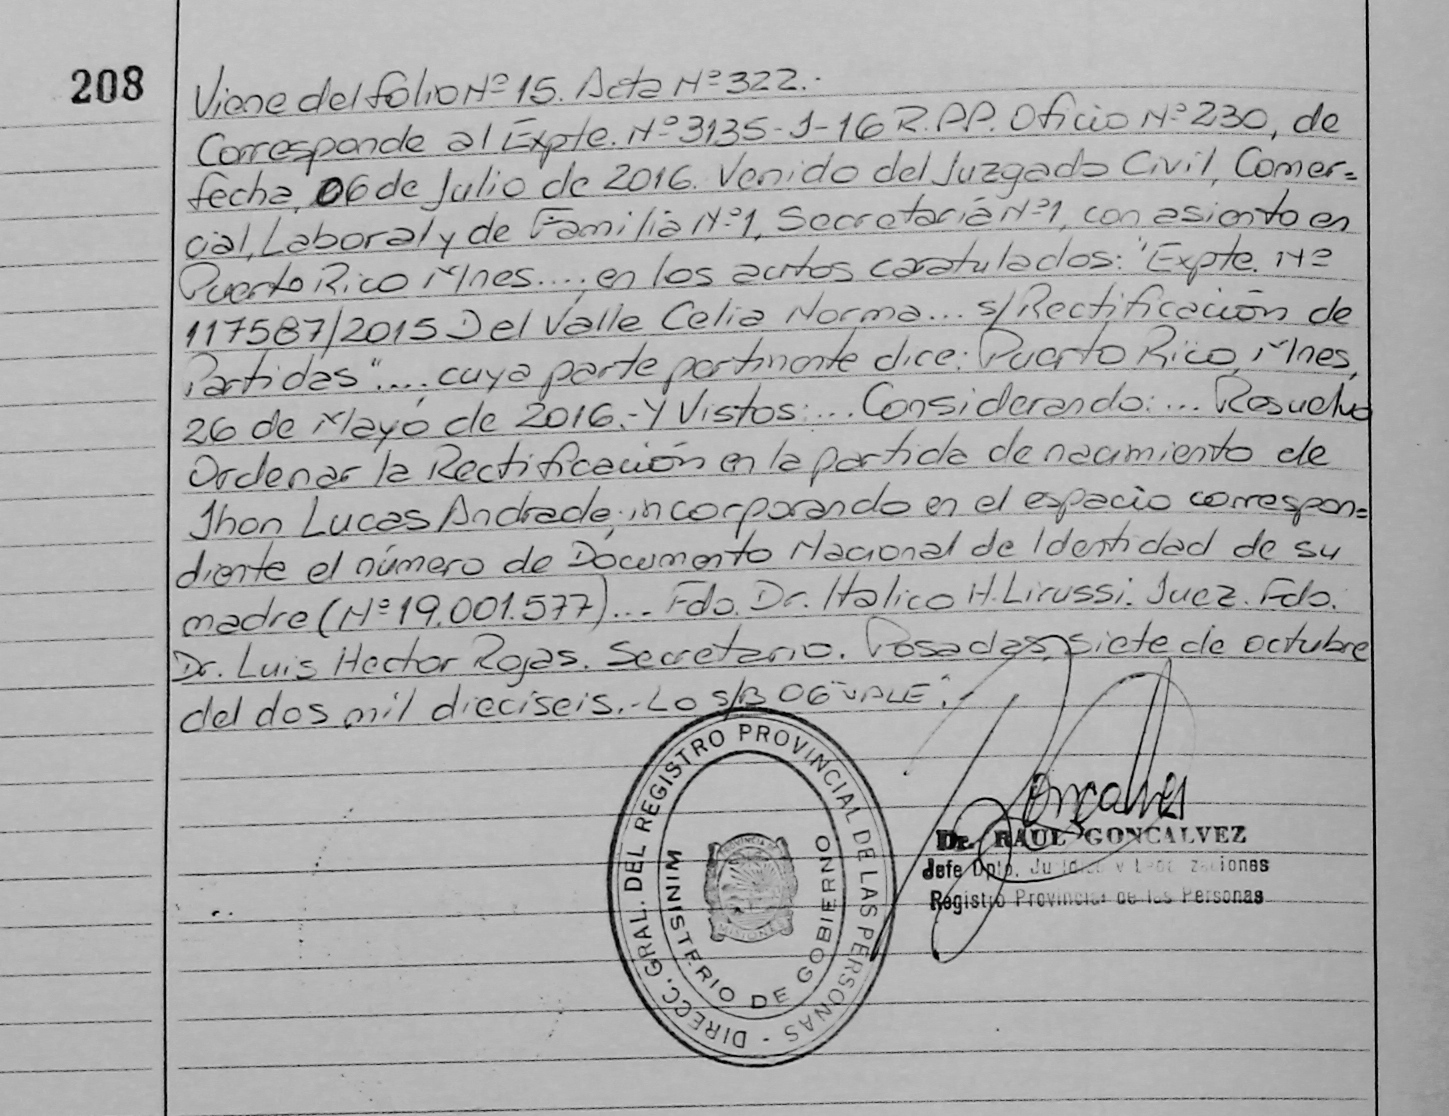 208
Viene del folio Nº 15. Acta Nº 322.-
Corresponde al Expte. Nº 3135-J-16 R.PP. Oficio Nº 230, de
fecha, 06 de Julio de 2016. Venido del Juzgado Civil, Comer=
cial, Laboral y de Familia Nº 1, Secretaria Nº 1, con asiento en
Puerto Rico Mnes....; en los autos caratulados: "Expte. Nº
117587/2015 Del Valle Celia Norma... s/Rectificación de
Partidas"...., cuya parte pertinente dice: Puerto Rico, Mnes,
26 de Mayo de 2016.- Y Vistos:... Considerando:... Resuelvo
Ordenar la Rectificación en la partida de nacimiento de
Jhon Lucas Andrade, incorporando en el espacio correspon=
diente el número de Documento Nacional de Identidad de su
madre (Nº 19.001.577).... Fdo. Dr. Italico H. Lirussi. Juez. Fdo.
Dr. Luis Hector Rojas. Secretario. Posadas, siete de octubre
del dos mil dieciseis.- Lo s/B 06 "VALE".
DIRECC. GRAL. DEL REGISTRO PROVINCIAL DE LAS PERSONAS -
MINISTERIO DE GOBIERNO
PROVINCIA DE
MISIONES
Gonçalves
Dr. RAUL GONCALVEZ
Jefe Dpto. y
Registro Provincial de las Personas